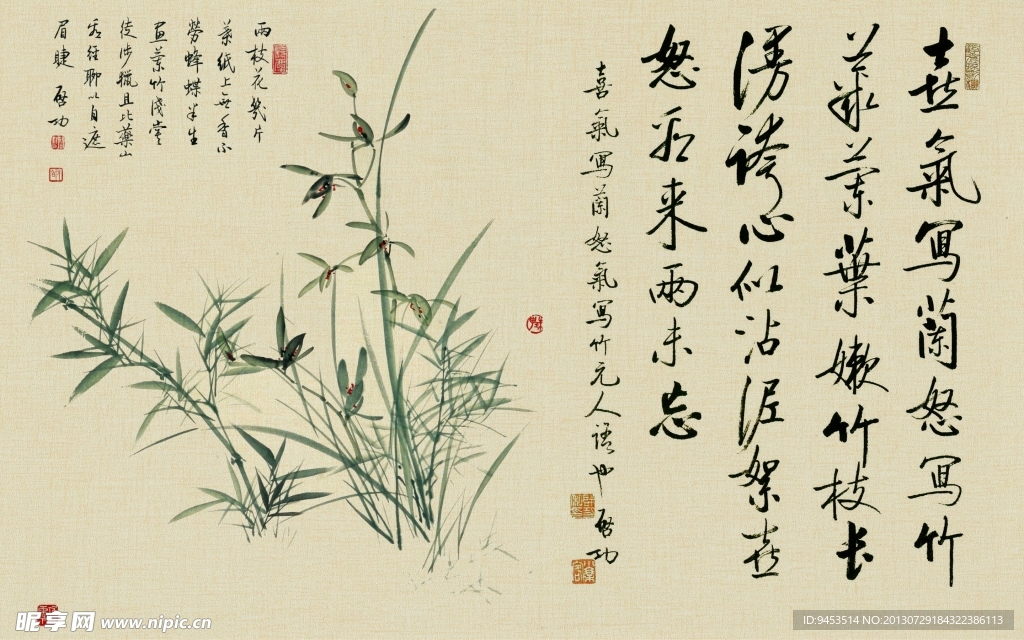 喜氣寫蘭怒寫竹
叢蘭葉嫩竹枝長
漫誇心似沾泥絮喜
怒看来兩未忘
喜氣寫蘭怒氣寫竹元人語也 啟功
兩枝花幾片
葉紙上無香不
勞蜂蝶半生
畫蘭竹淺嘗
徒涉獵且比藥山
看經聊以自遮
眉睫 啟功
昵享网 www.nipic.cn
ID:9453514 NO:20130729184322386113